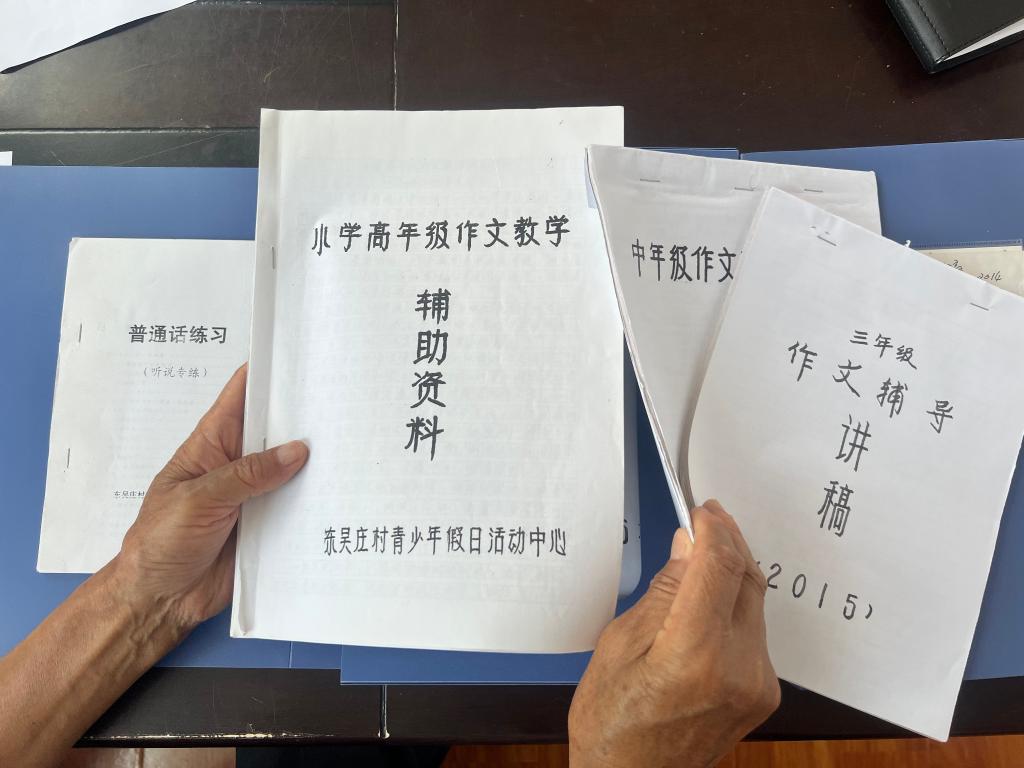 普通话练习
（听说专练）
东吴庄村
小学高年级作文教学
辅助资料
东吴庄村青少年假日活动中心
中年级作文
三年级
作文辅导
讲稿
（2015）
2014